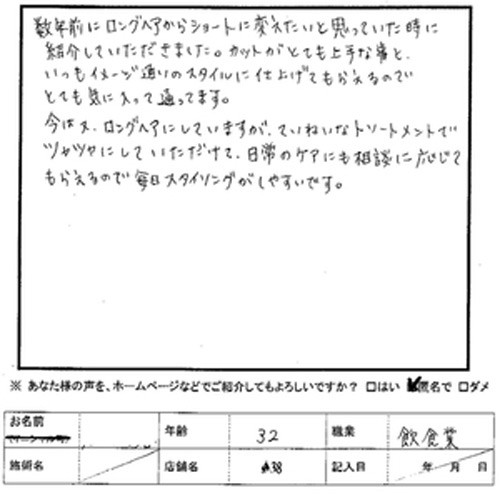 数年前にロングヘアからショートに変えたいと思っていた時に
紹介していただきました。カットがとても上手な事と、
いつもイメージ通りのスタイルに仕上げてもらえるので
とても気に入って通ってます。
今は又、ロングヘアにしていますが、ていねいなトリートメントで
ツヤツヤにしていただけて、日常のケアにも相談に応じて
もらえるので毎日スタイリングがしやすいです。
※ あなた様の声を、ホームページなどでご紹介してもよろしいですか? □はい □匿名で □ダメ
お名前 年齢 32 職業 飲食業
施術名 店舗名 記入日 年 月 日